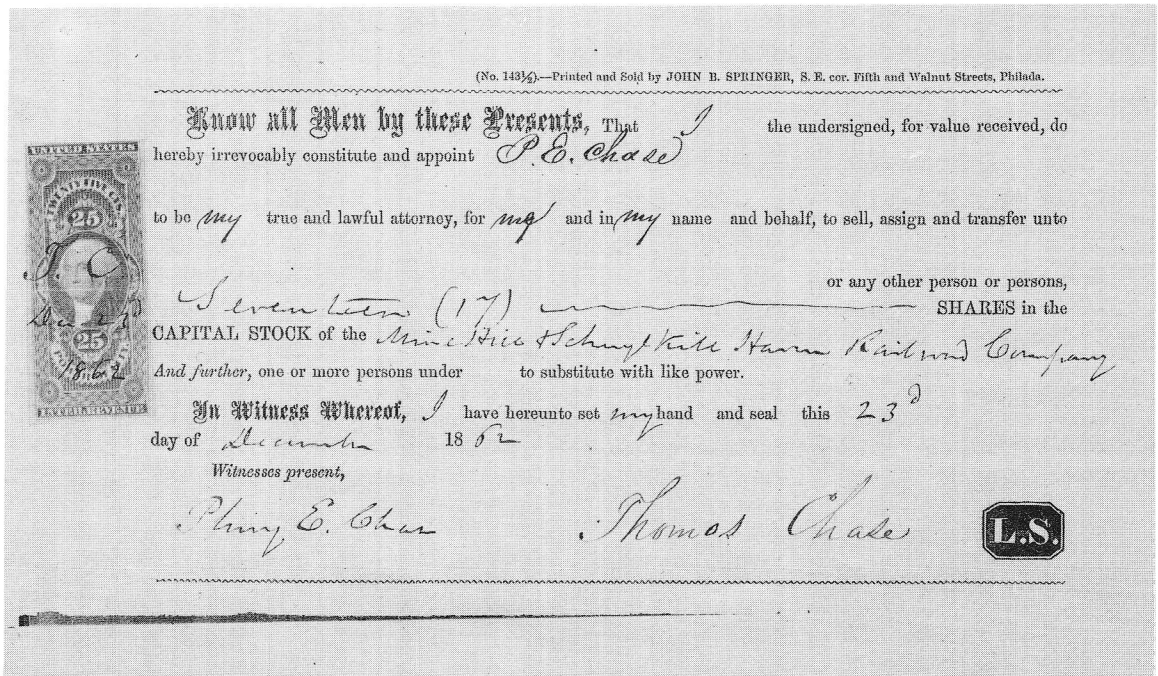 (No. 143½).—Printed and Sold by JOHN B. SPRINGER, S. E. cor. Fifth and Walnut Streets, Philada.
Know all Men by these Presents, That I the undersigned, for value received, do
hereby irrevocably constitute and appoint P. E. Chase
to be my true and lawful attorney, for me and in my name and behalf, to sell, assign and transfer unto
or any other person or persons,
Seventeen (17) SHARES in the
CAPITAL STOCK of the Mine Hill & Schuylkill Haven Railroad Company
And further, one or more persons under to substitute with like power.
In Witness Whereof, I have hereunto set my hand and seal this 23d
day of December 1862
Witnesses present,
Pliny E. Chase Thomas Chase L.S.
UNITED STATES
TWENTY FIVE CTS.
25
T. C
Dec 23d
25
1862
INTER. REVENUE